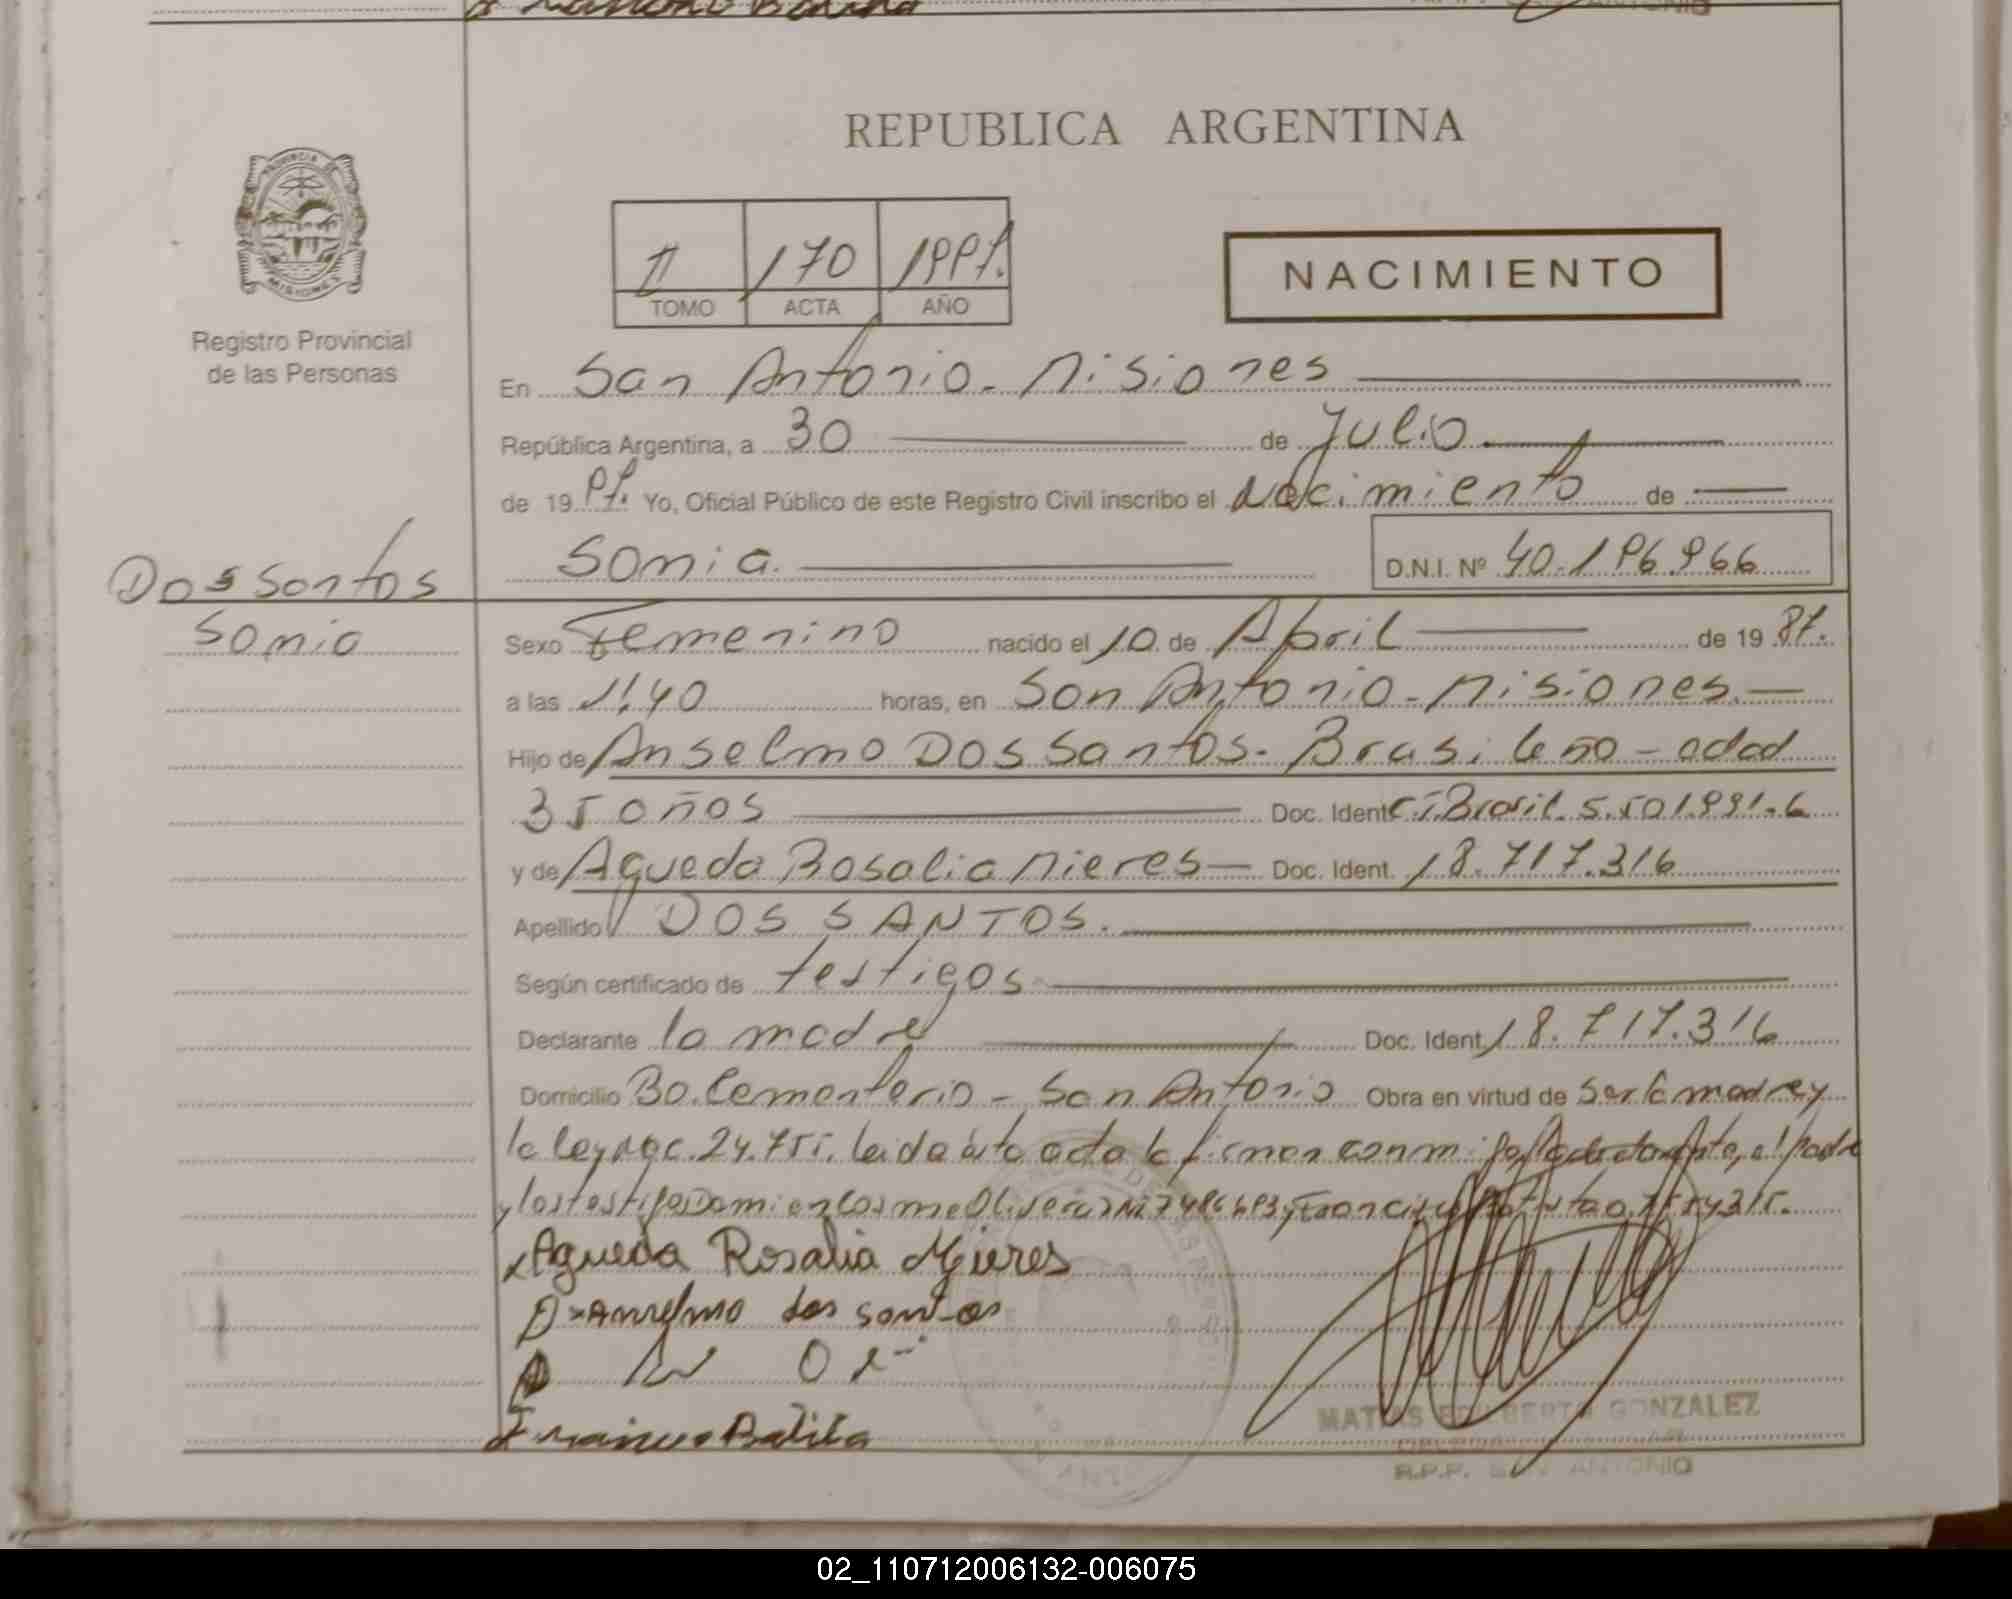 REPUBLICA ARGENTINA
PROVINCIA
MISIONES
Registro Provincial
de las Personas
II 170 1997.
TOMO ACTA AÑO
NACIMIENTO
En San Antonio - Misiones
República Argentina, a 30 de Julio
de 1997. Yo, Oficial Público de este Registro Civil inscribo el nacimiento de
Sonia. D.N.I. Nº 40.196.966
Dos Santos
Sonia
Sexo Femenino nacido el 10 de Abril de 1987.
a las 11:40 horas, en San Antonio - Misiones.
Hijo de Anselmo Dos Santos - Brasileño - edad
35 años Doc. Ident. C.I. Brasil. 5.501.991-6
y de Agueda Rosalia Mieres Doc. Ident. 18.717.316
Apellido DOS SANTOS.
Según certificado de testigos
Declarante la madre Doc. Ident. 18.717.316
Domicilio Bo. Cementerio - San Antonio Obra en virtud de Ser la madre y
la ley nac. 24.755. Leida esta acta la firman conmigo el padre
y los testigos Damian Cosme Olivera DNI 7486693 y Francisco
x Agueda Rosalia Mieres
x Anselmo dos santos
Francisco Batista
MATIAS EDILBERTO GONZALEZ
R.P.P. SAN ANTONIO
02_110712006132-006075